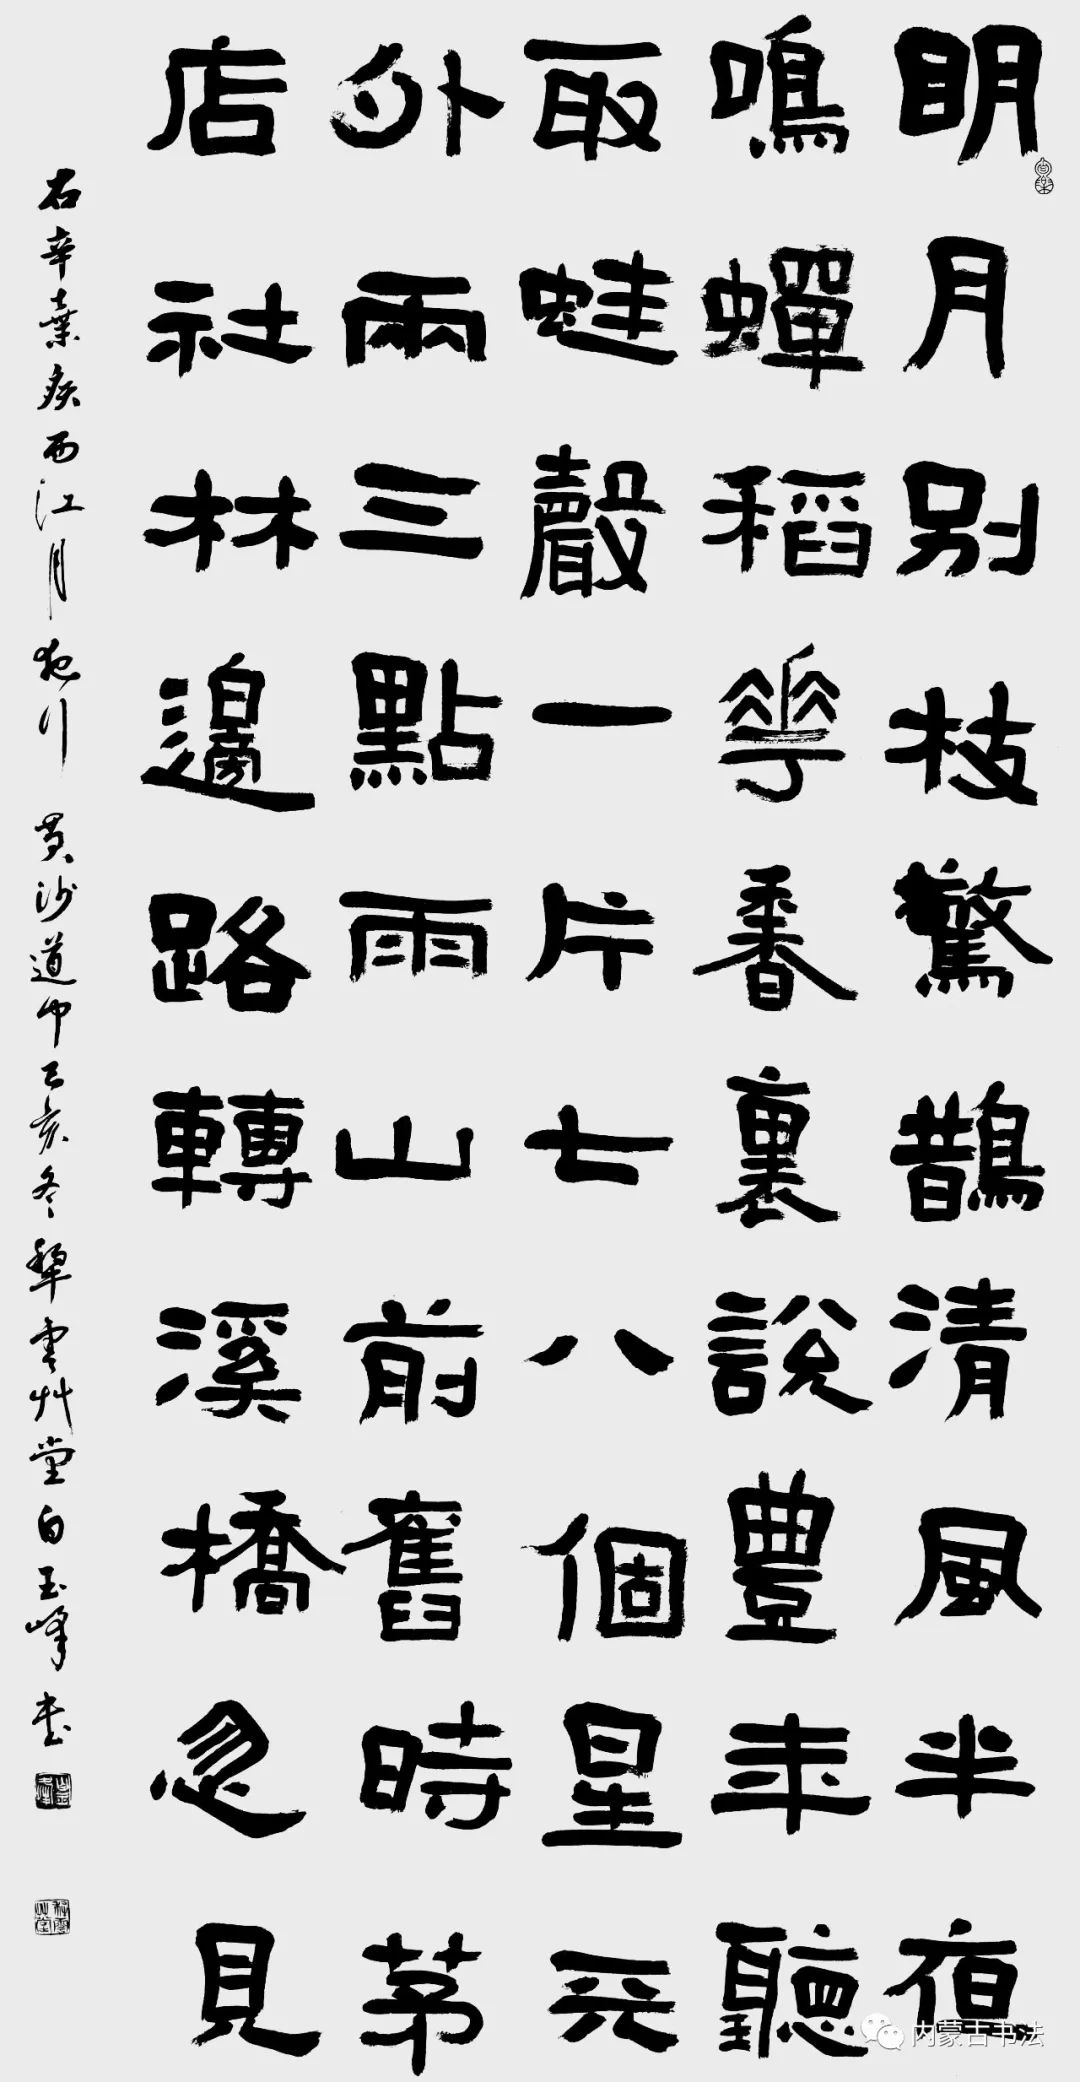 明月别枝驚鵲清風半夜
鳴蟬稻華香裏說豐年聽
取蛙聲一片七八個星天
外兩三點雨山前舊時茅
店社林邊路轉溪橋忽見
右辛棄疾西江月夜行黄沙道中己亥冬犁雲艸堂白玉峰書
内蒙古书法